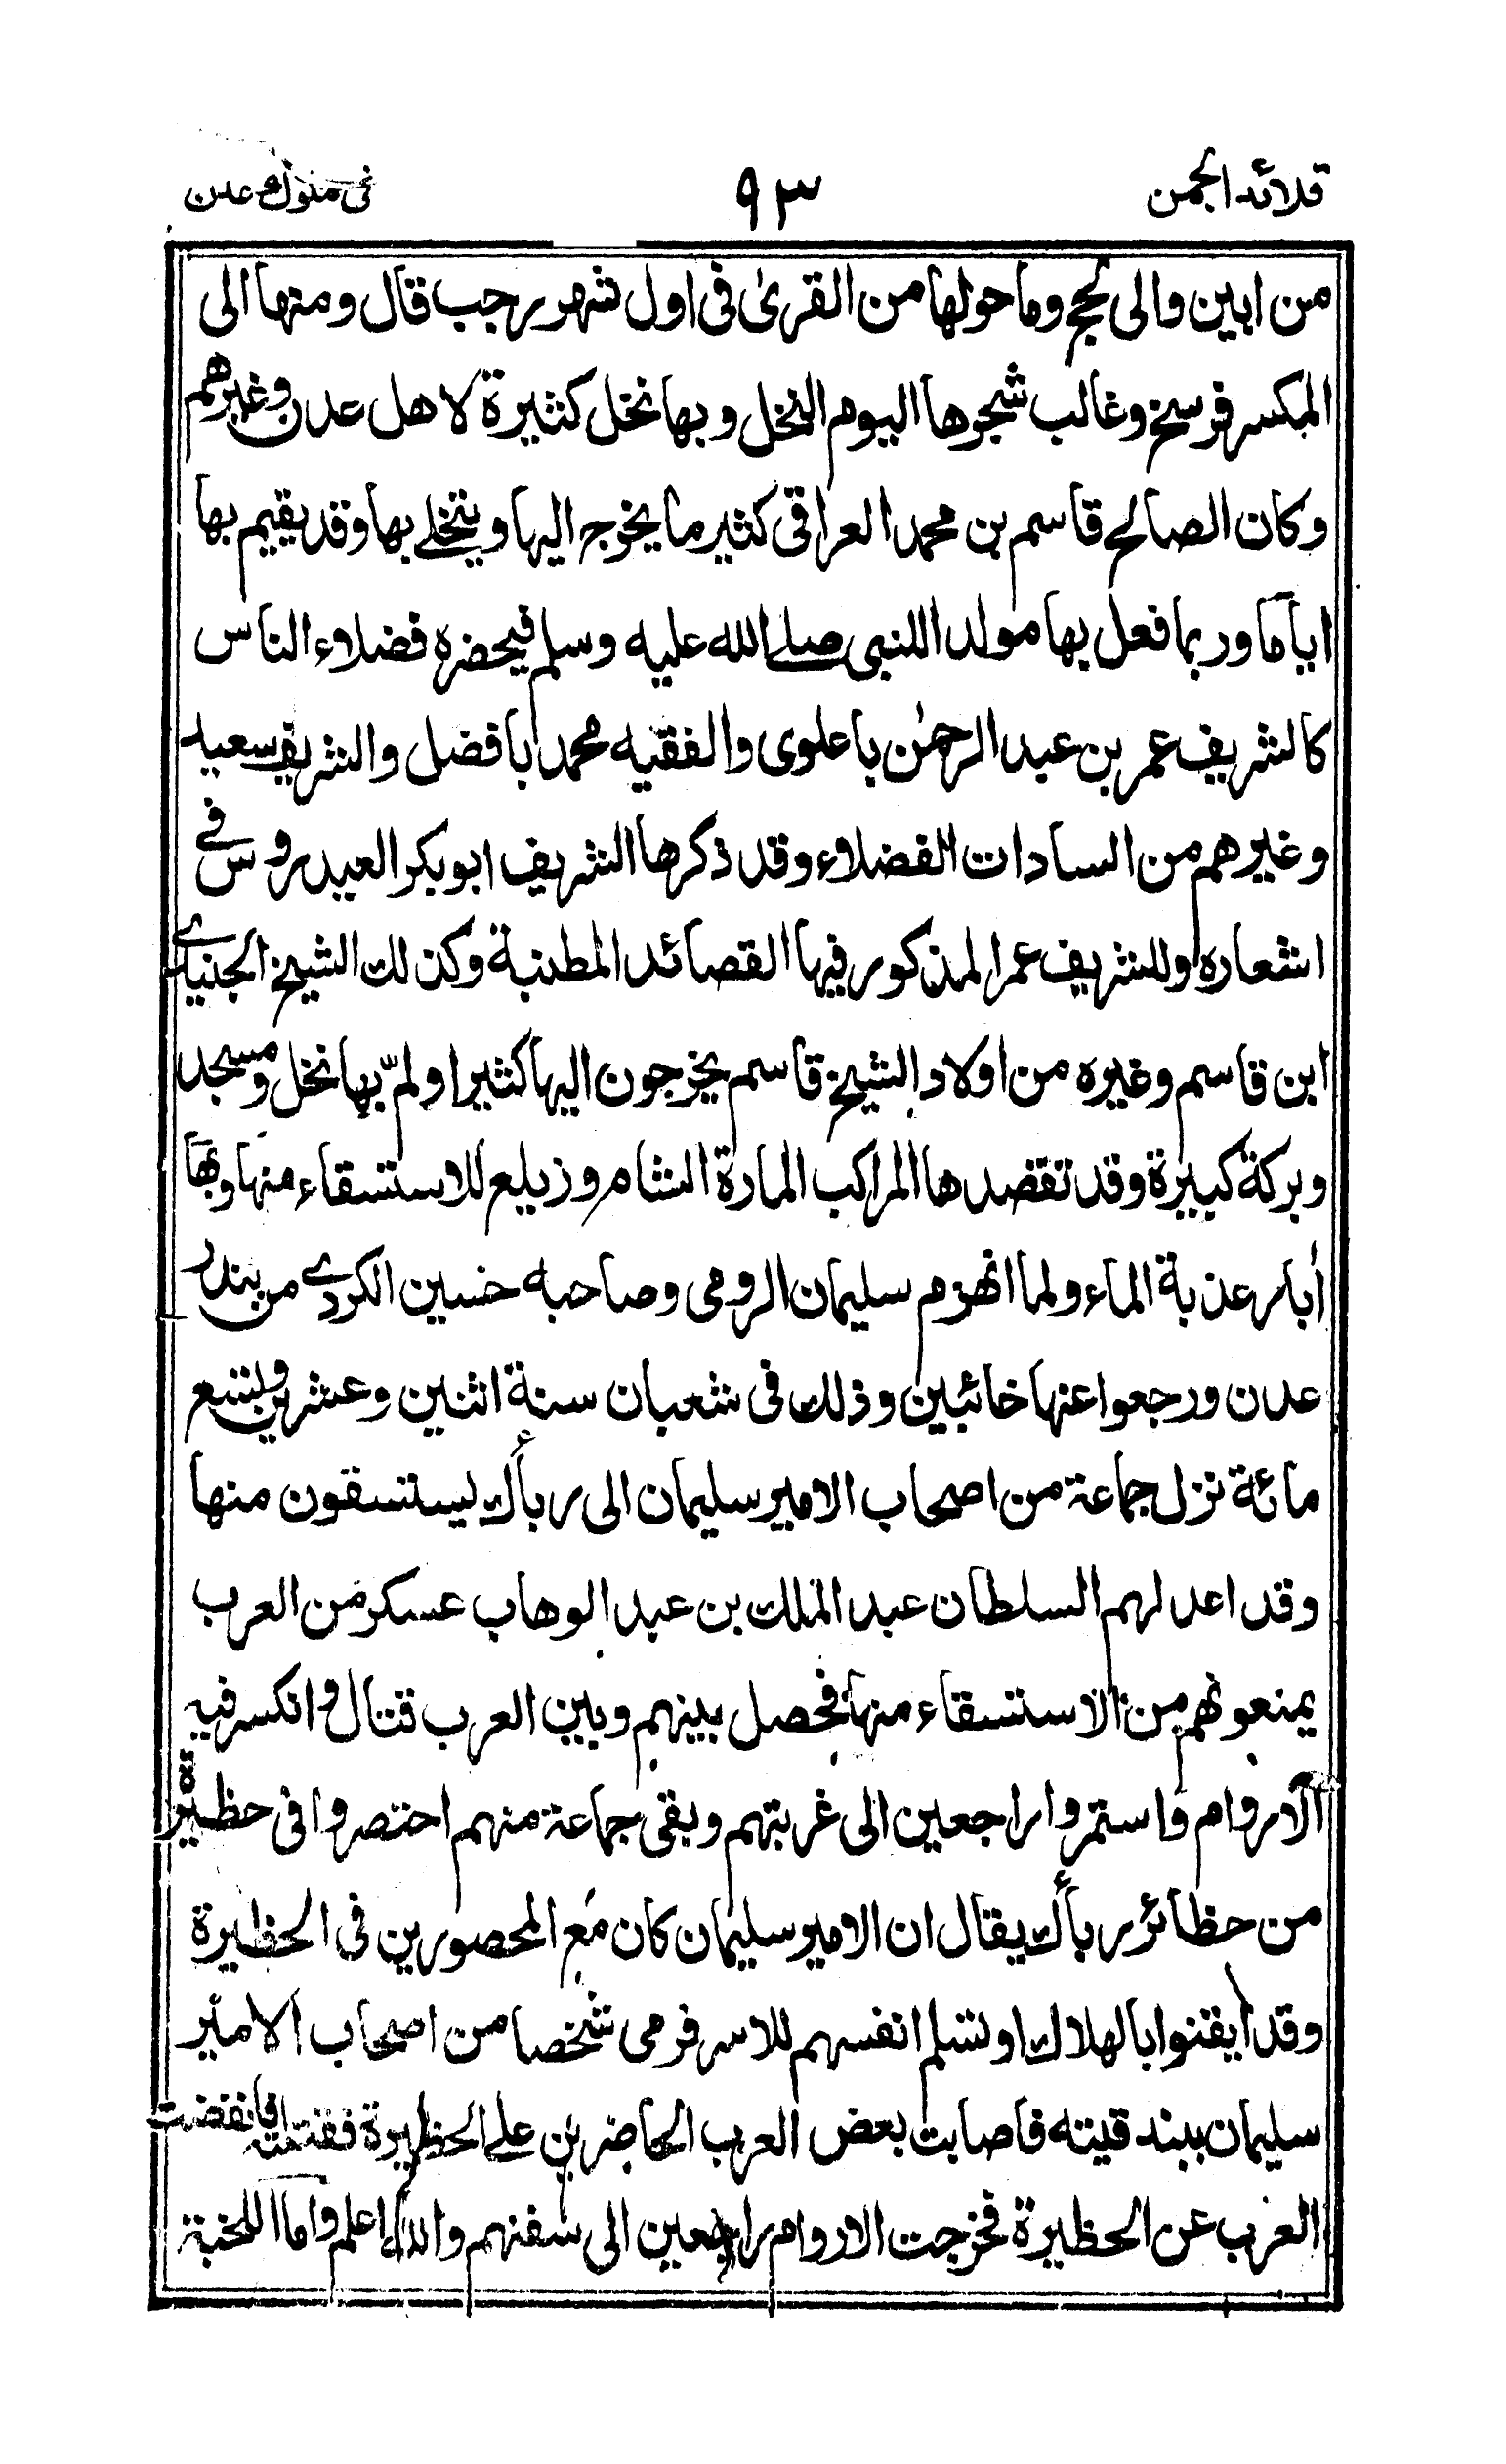 قلائد الجمن
٩٣
فى ملوك عدن
من ابين والى لحج وما حولها من القرىٰ فى اول شهر رجب قال ومنها الى
المكسر فرسخ وغالب شجرها اليوم النخل وبها نخل كثيرة لاهل عدن وغيرهم
وكان الصالح قاسم بن محمد العراقى كثير ما يخرجه اليها ويتخلے بها وقد يقيم بها
اياما وربما فعل بها مولد اللنبى صلے الله عليه وسلم فيحضره فضلاء الناس
كالشريف عمر بن عبد الرحمٰن باعلوى والفقيه محمد ابا فضل والشريف سعيد
وغيرهم من السادات الفضلاء وقد ذكرها الشريف ابوبكر العيدروس فے
اشعاره وللشريف عمر المذكور فيها القصائد المطنبة وكذلك الشيخ الجنيد
ابن قاسم وغيره من اولاد الشيخ قاسم يخرجون اليها كثيرا ولمّ بها نخل ومسجد
وبركة كبيرة وقد تقصدها المراكب المارة الشام وزيلع للاستسقاء منها وبها
أبار عذبة الماء ولما انهزم سليمان الرومى وصاحبه حسين الكردے من بندر
عدن ورجعوا عنها خائبين وذلك فى شعبان سنة اثنين وعشرين وتسع
مائة نزل جماعة من اصحاب الامير سليمان الى رباك ليستسقون منها
وقد اعد لهم السلطان عبد الملك بن عبد الوهاب عسكر من العرب
يمنعونهم من الاستسقاء منها فحصل بينهم وبين العرب قتال وانكسر فيه
الاروام واستمروا راجعين الى غربتهم وبقى جماعة منهم احتصروا فى حظيرة
من حظائر رباك يقال ان الامير سليمان كان مع المحصورين فى الحظيرة
وقد أيقنوا بالهلاك او لتسلم انفسهم للاسر فرمى شخصا من اصحاب الامير
سليمان ببندقيته فاصابت بعض العرب الحاضرين علے الحظيرة فقتلته فانفضت
العرب عن الحظيرة فخرجت الاروام راجعين الى سفنهم والله اعلم واما اللخبة